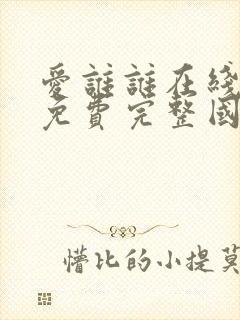 愛誰誰在綫
免費完整國
懵比的小提莫